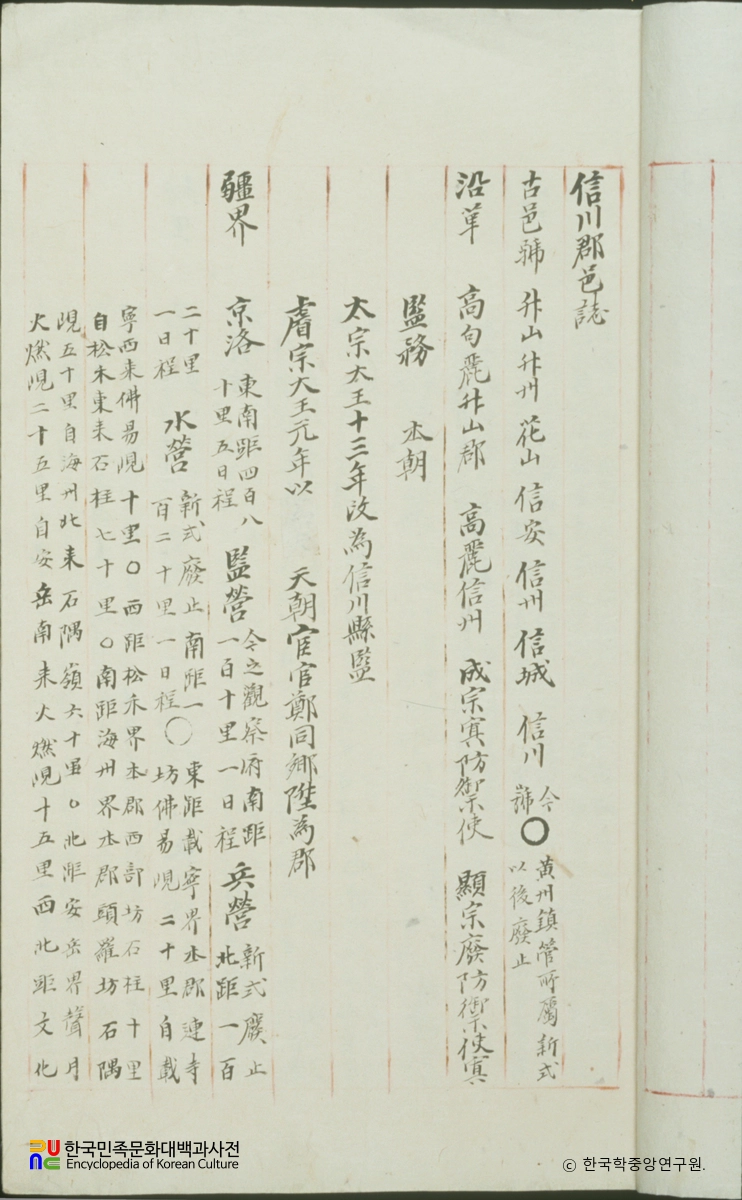 信川郡邑誌
古邑號 升山升州 花山 信安 信州 信城 信川 今號 〇 黃州鎭管所屬新式以後廢止
沿革 高句麗升山郡 高麗信州 成宗寘防禦使 顯宗廢防禦使寘
監務 本朝
太宗大王十三年改為信川縣監
睿宗大王元年以 天朝宦官鄭同鄕陞為郡
疆界 京洛 東南距四百八十里五日程 監營 今之觀察府南距一百十里一日程 兵營 新式廢止北距一百
二十里一日程 水營 新式廢止南距一百二十里一日程〇 東距載寧界本郡連寺坊佛昜峴二十里自載
寧西來佛昜峴十里〇西距松禾界本郡西部坊石柱十里
自松禾東來石柱七十里〇南距海州界本郡頭羅坊石隅
峴五十里自海州北來石隅嶺六十里〇北距安岳界聲月
火燃峴二十五里自安岳南來火燃峴十五里西北距文化
한국민족문화대백과사전
Encyclopedia of Korean Culture
ⓒ 한국학중앙연구원.